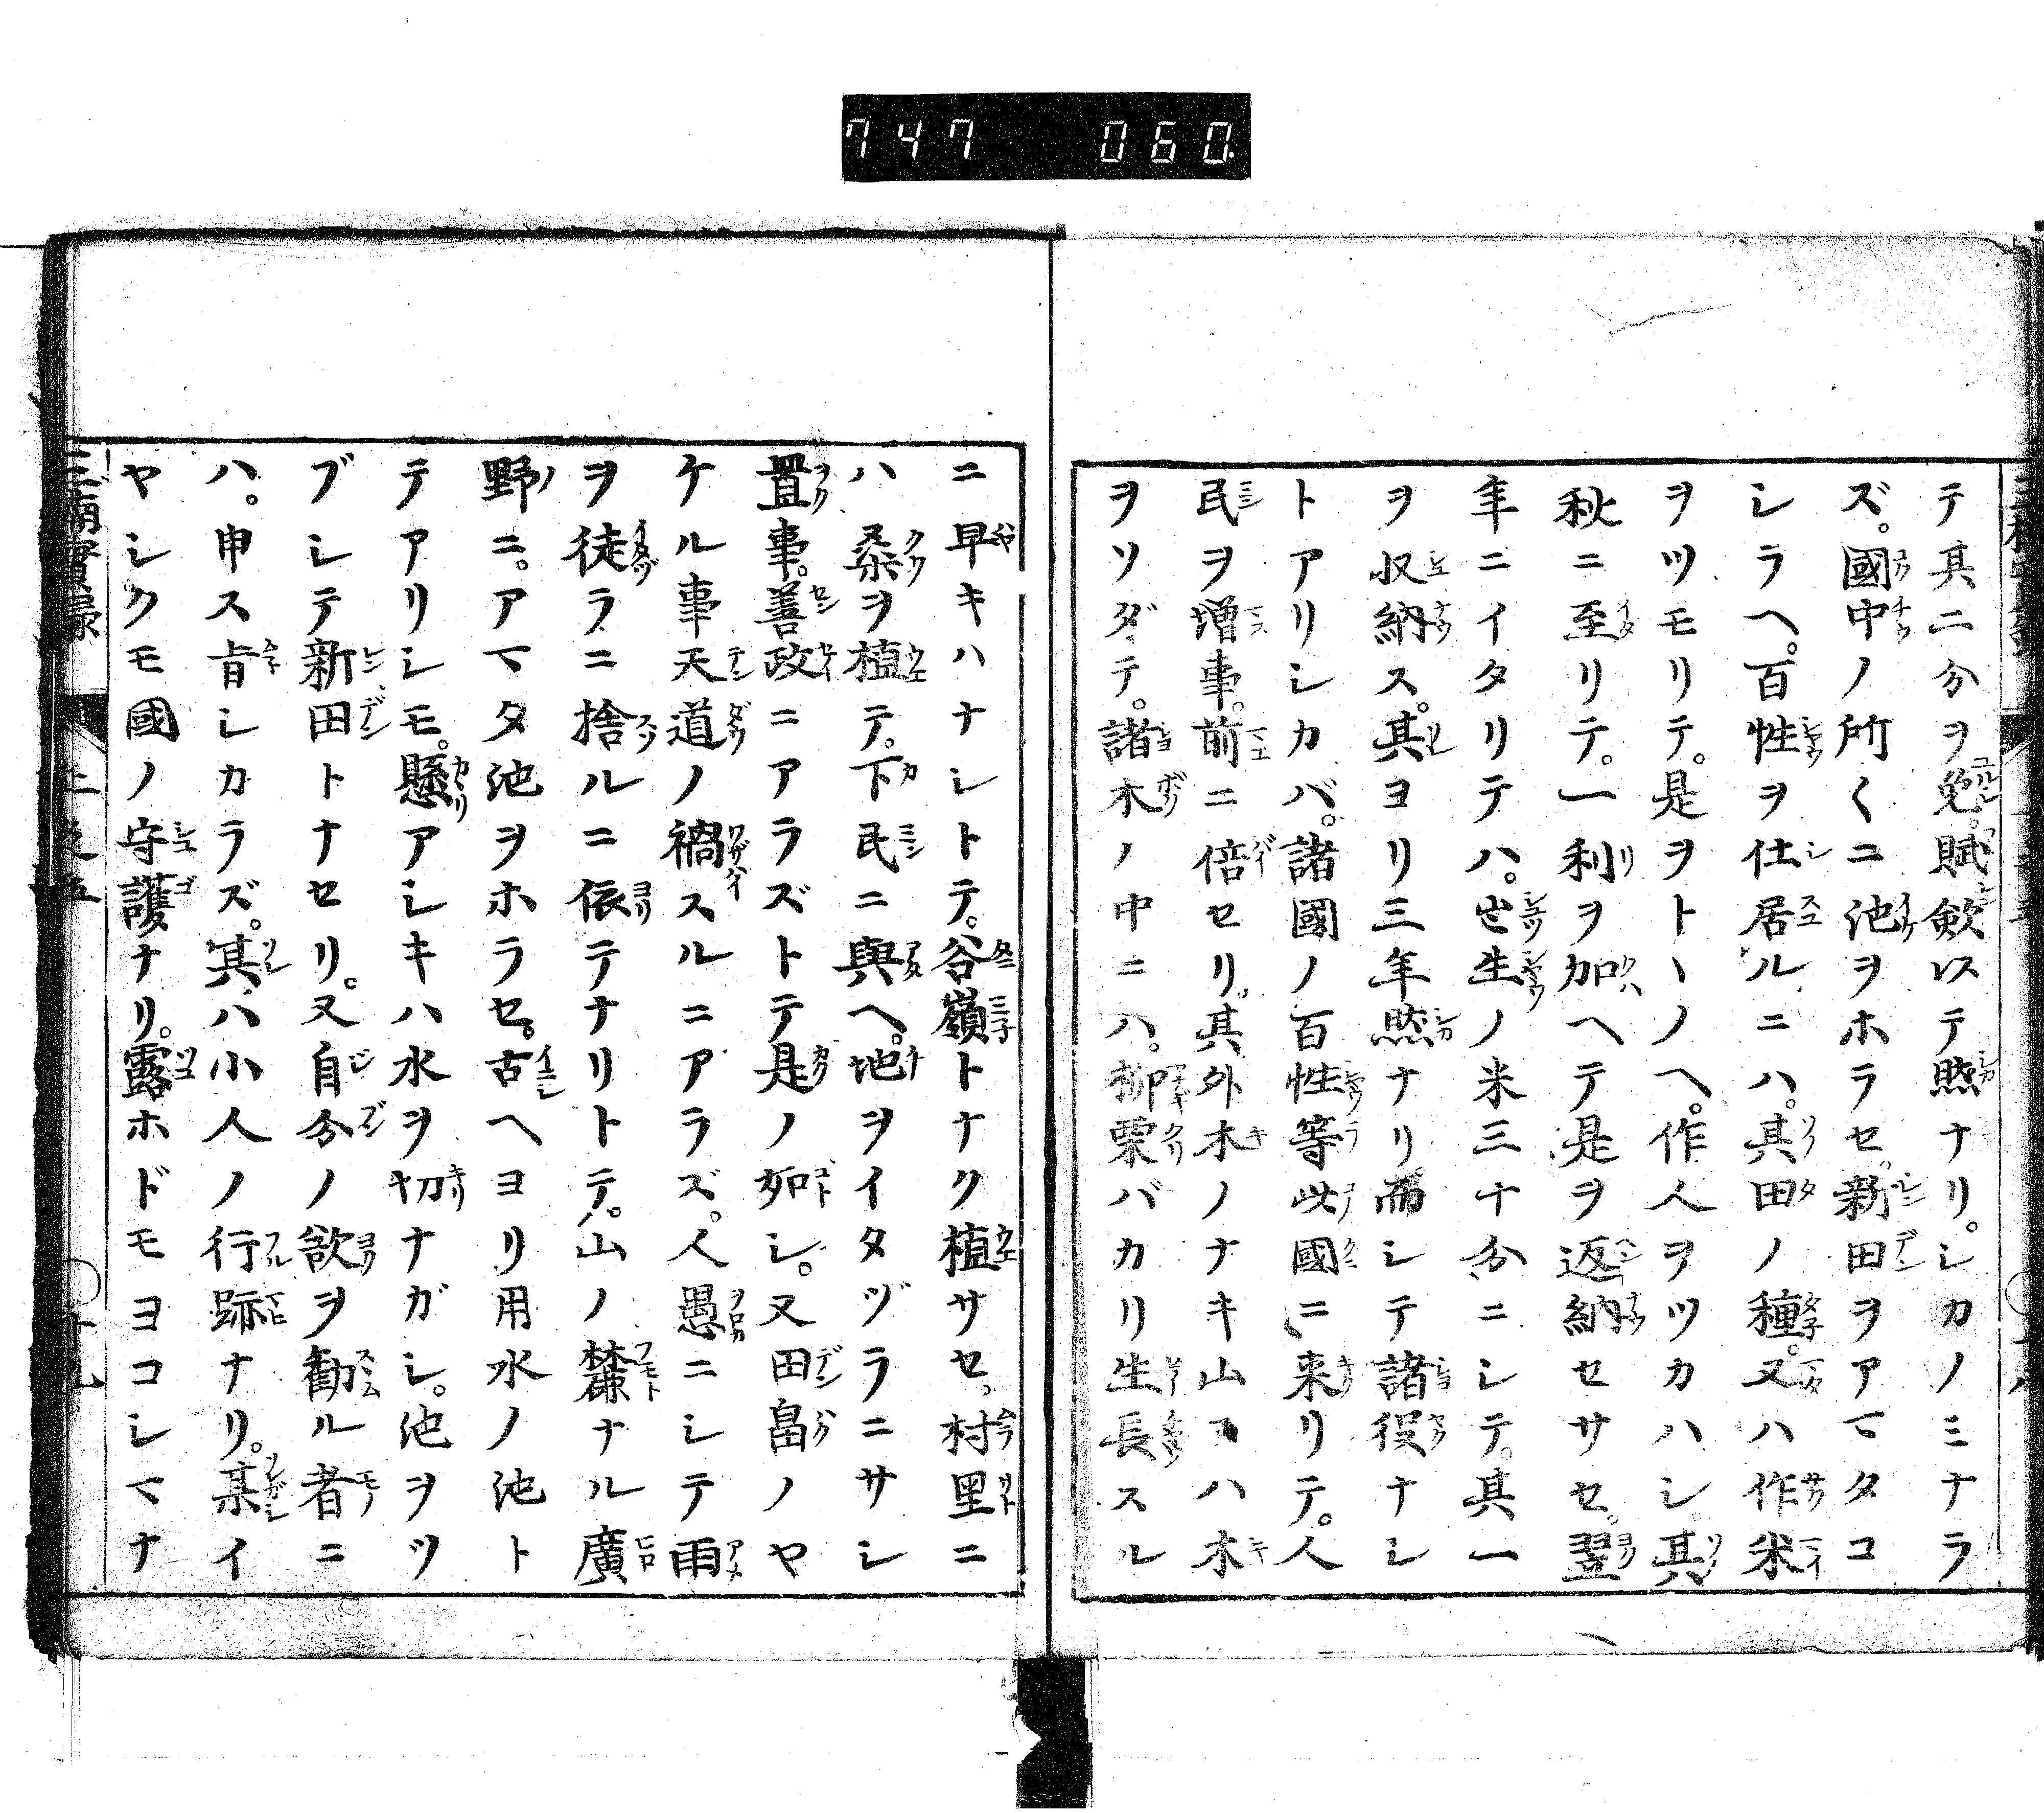 747 060
テ其二分ヲ免。賦歛以テ然ナリ。シカノミナラ
ズ。國中ノ所〱ニ池ヲホラセ。新田ヲアマタコ
シラヘ。百性ヲ仕居ルニハ。其田ノ種。又ハ作米
ヲツモリテ。是ヲトヽノヘ。作人ヲツカハシ。其
秋ニ至リテ。一利ヲ加ヘテ是ヲ返納セサセ。翌
年ニイタリテハ。出生ノ米三十分ニシテ。其一
ヲ収納ス。其ヨリ三年然ナリ而シテ諸役ナシ
トアリシカバ。諸國ノ百性等此國ニ来リテ。人
民ヲ増事。前ニ倍セリ。其外木ノナキ山ヨハ木
ヲソダテ。諸木ノ中ニハ。柳栗バカリ生長スル
ニ早キハナシトテ。谷嶺トナク植サセ。村里ニ
ハ桑ヲ植テ。下民ニ與ヘ。地ヲイタヅラニサシ
置事。善政ニアラズトテ是ノ如シ。又田畠ノヤ
ケル事天道ノ禍スルニアラズ。人愚ニシテ雨
ヲ徒ラニ捨ルニ依テナリトテ。山ノ麓ナル廣
野ニ。アマタ池ヲホラセ。古ヘヨリ用水ノ池ト
テアリシモ。懸アシキハ水ヲ切ナガシ。池ヲツ
ブシテ新田トナセリ。又自分ノ欲ヲ勸ル者ニ
ハ。申ス肯シカラズ。其ハ小人ノ行跡ナリ。某イ
ヤシクモ國ノ守護ナリ。露ホドモヨコシマナ